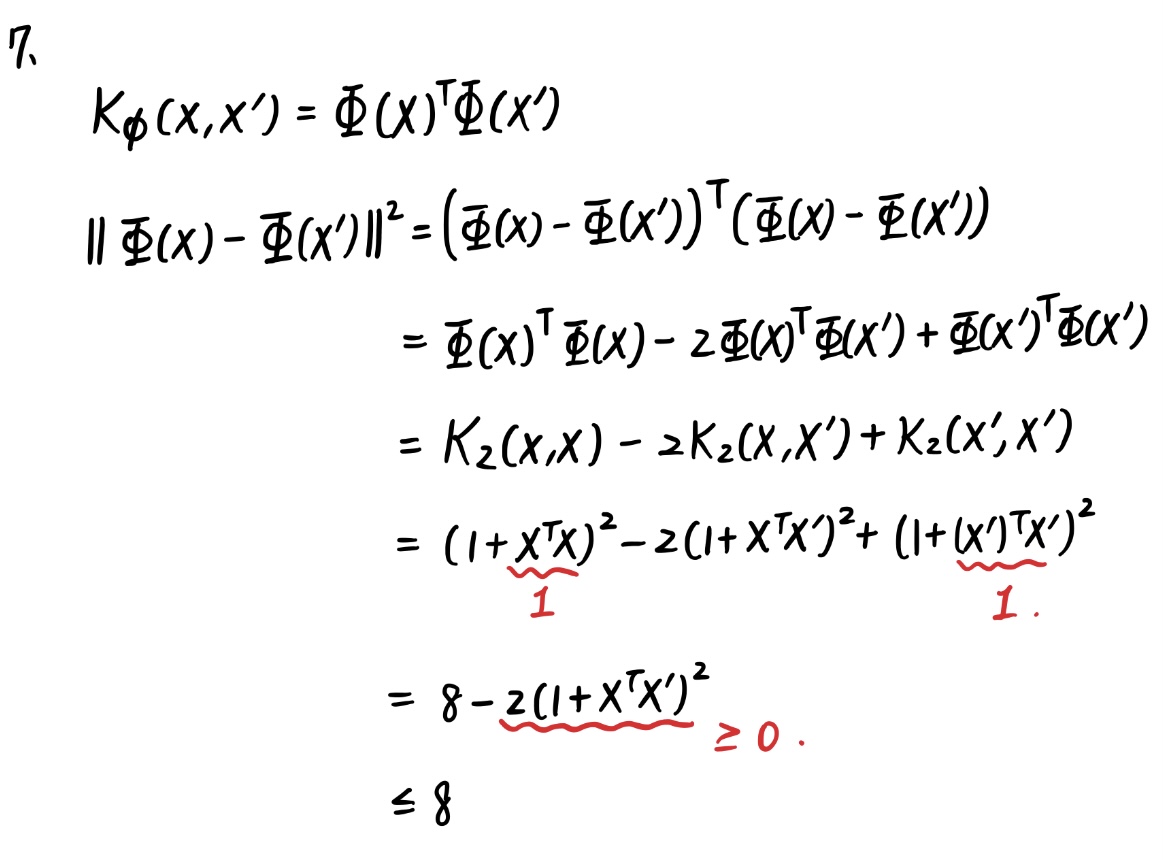 7.
K_ϕ(x,x′) = Φ(x)ᵀΦ(x′)
‖Φ(x) − Φ(x′)‖² = (Φ(x) − Φ(x′))ᵀ(Φ(x) − Φ(x′))
= Φ(x)ᵀΦ(x) − 2Φ(x)ᵀΦ(x′) + Φ(x′)ᵀΦ(x′)
= K₂(x,x) − 2K₂(x,x′) + K₂(x′,x′)
= (1+xᵀx)² − 2(1+xᵀx′)² + (1+(x′)ᵀx′)²
1 1.
= 8 − 2(1+xᵀx′)²
≥ 0.
≤ 8